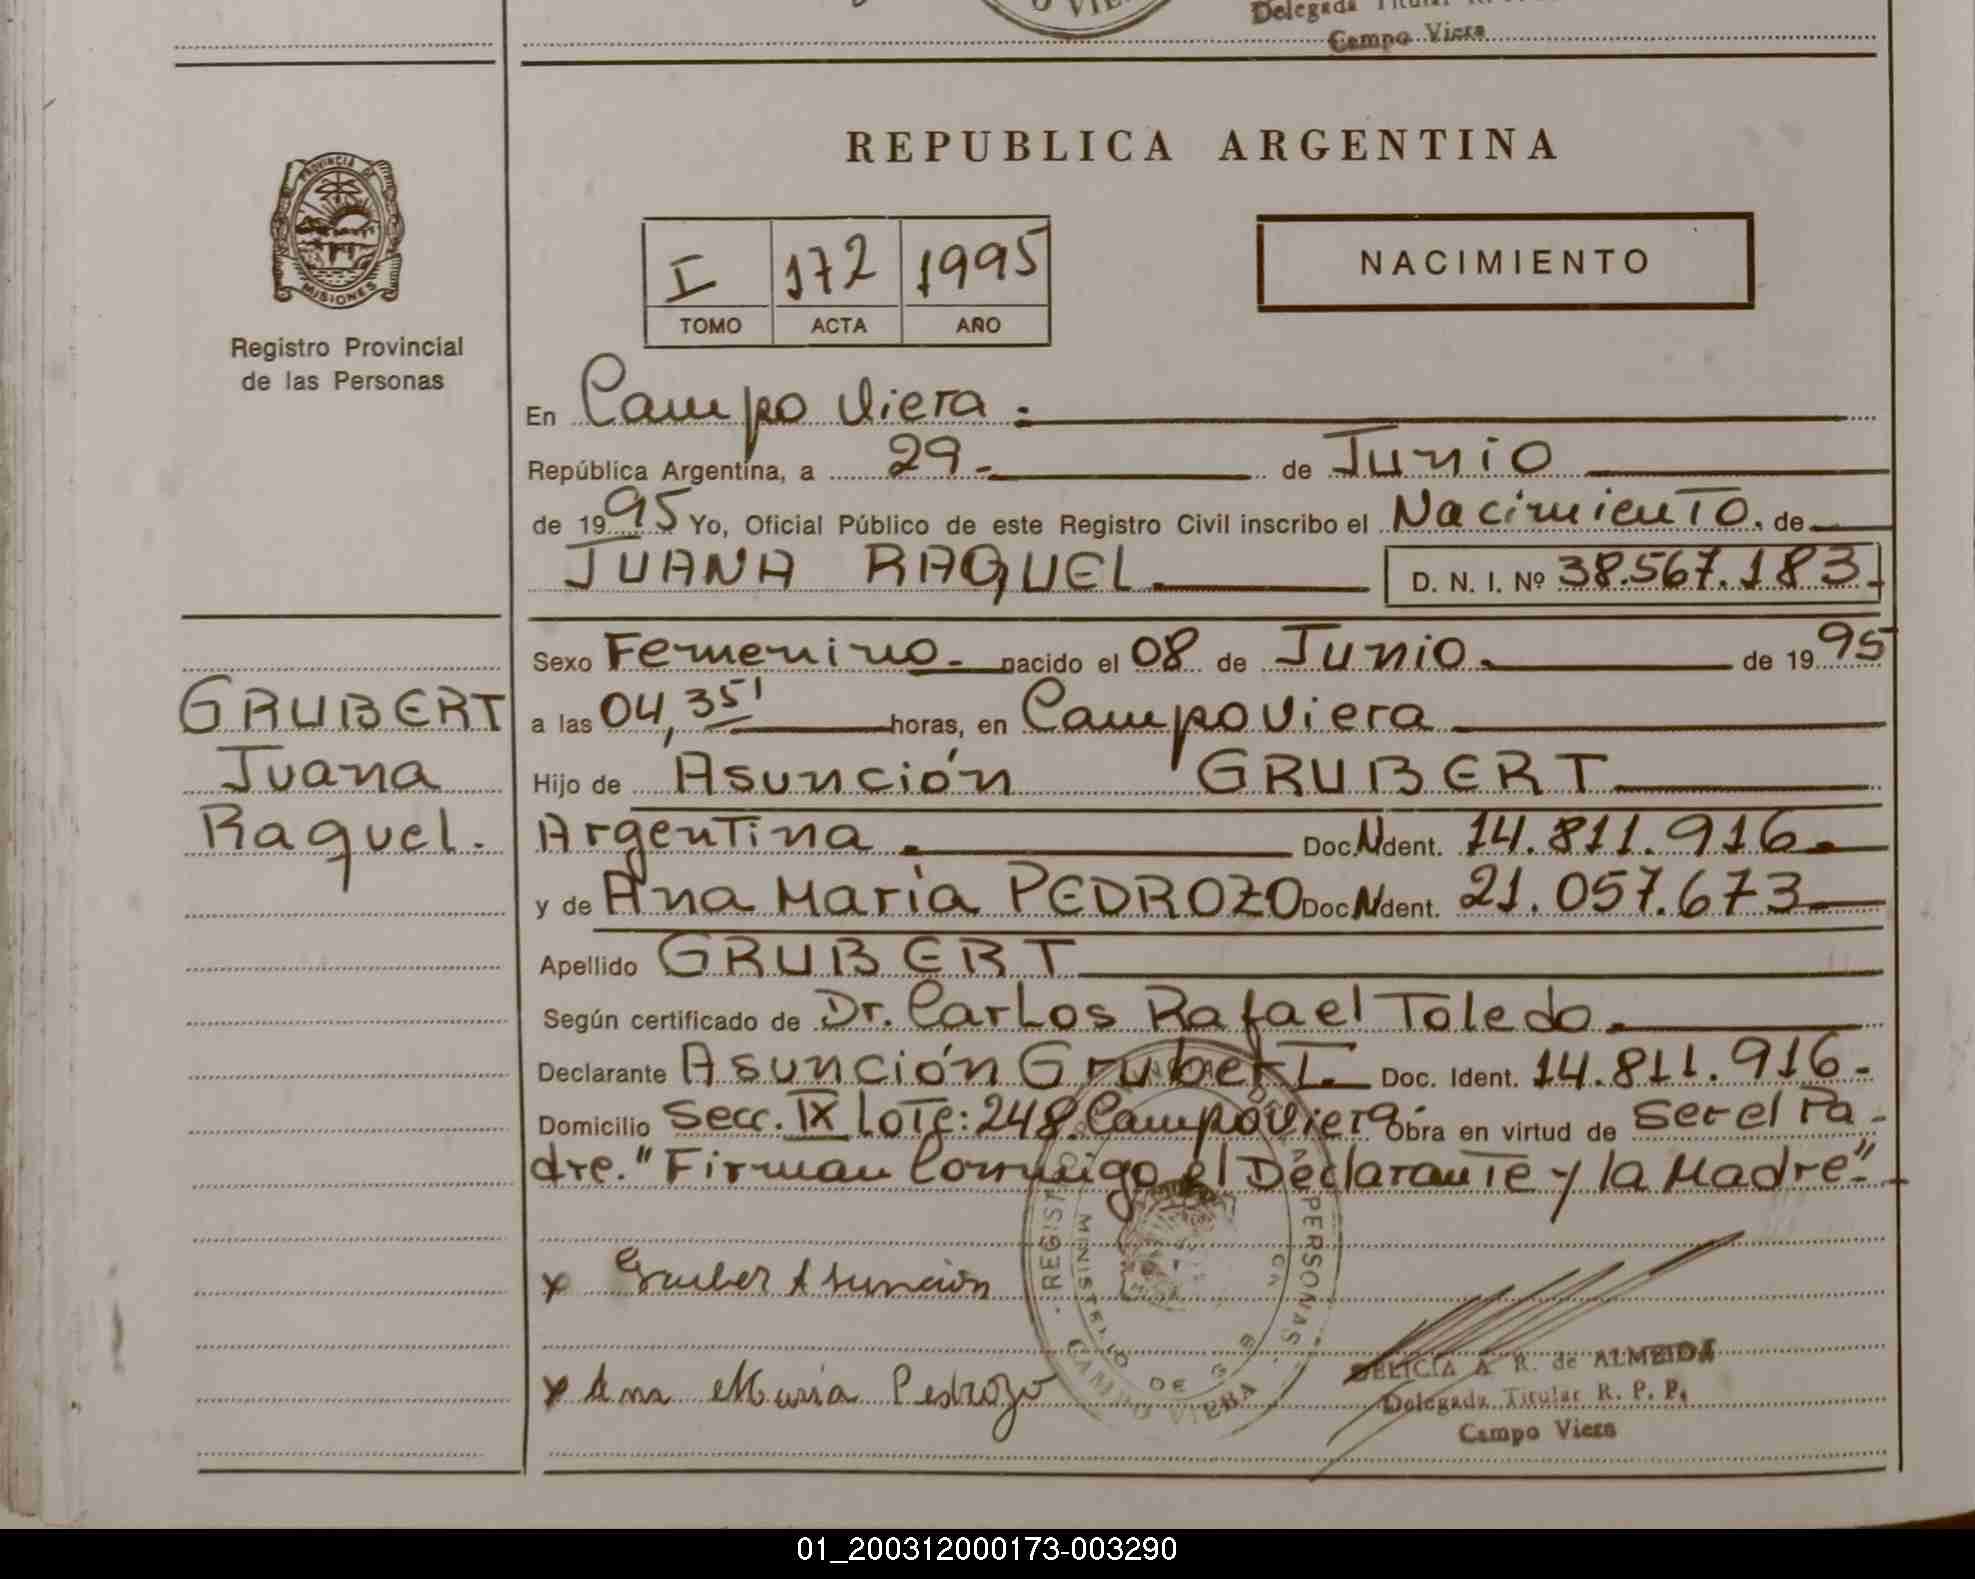 Delegada Titular
Campo Viera
REPUBLICA ARGENTINA
PROVINCIA DE
MISIONES
Registro Provincial
de las Personas
I 172 1995
TOMO ACTA AÑO
NACIMIENTO
En Campo Viera.
República Argentina, a 29- de Junio
de 1995 Yo, Oficial Público de este Registro Civil inscribo el Nacimiento. de
JUANA RAQUEL. D. N. I. Nº 38.567.183.
Sexo Femenino. nacido el 08 de Junio. de 1995
GRUBERT
Juana
Raquel.
a las 04,35' horas, en Campo Viera
Hijo de Asunción GRUBERT
Argentina. Doc. N Ident. 14.811.916.
y de Ana María PEDROZO Doc. N Ident. 21.057.673
Apellido GRUBERT
Según certificado de Dr. Carlos Rafael Toledo.
Declarante Asunción Grubert. Doc. Ident. 14.811.916-
Domicilio Secc. IX Lote: 248. Campo Viera. Obra en virtud de ser el Pa-
dre. "Firman Conmigo el Declarante y la Madre".
x Gruber Asunción
x Ana Maria Pedrozo
REGIST PERSONAS
MINISTERIO DE G
CAMPO VIERA
DELICIA A R. de ALMEIDA
Delegada Titular R. P. P.
Campo Viera
01_200312000173-003290